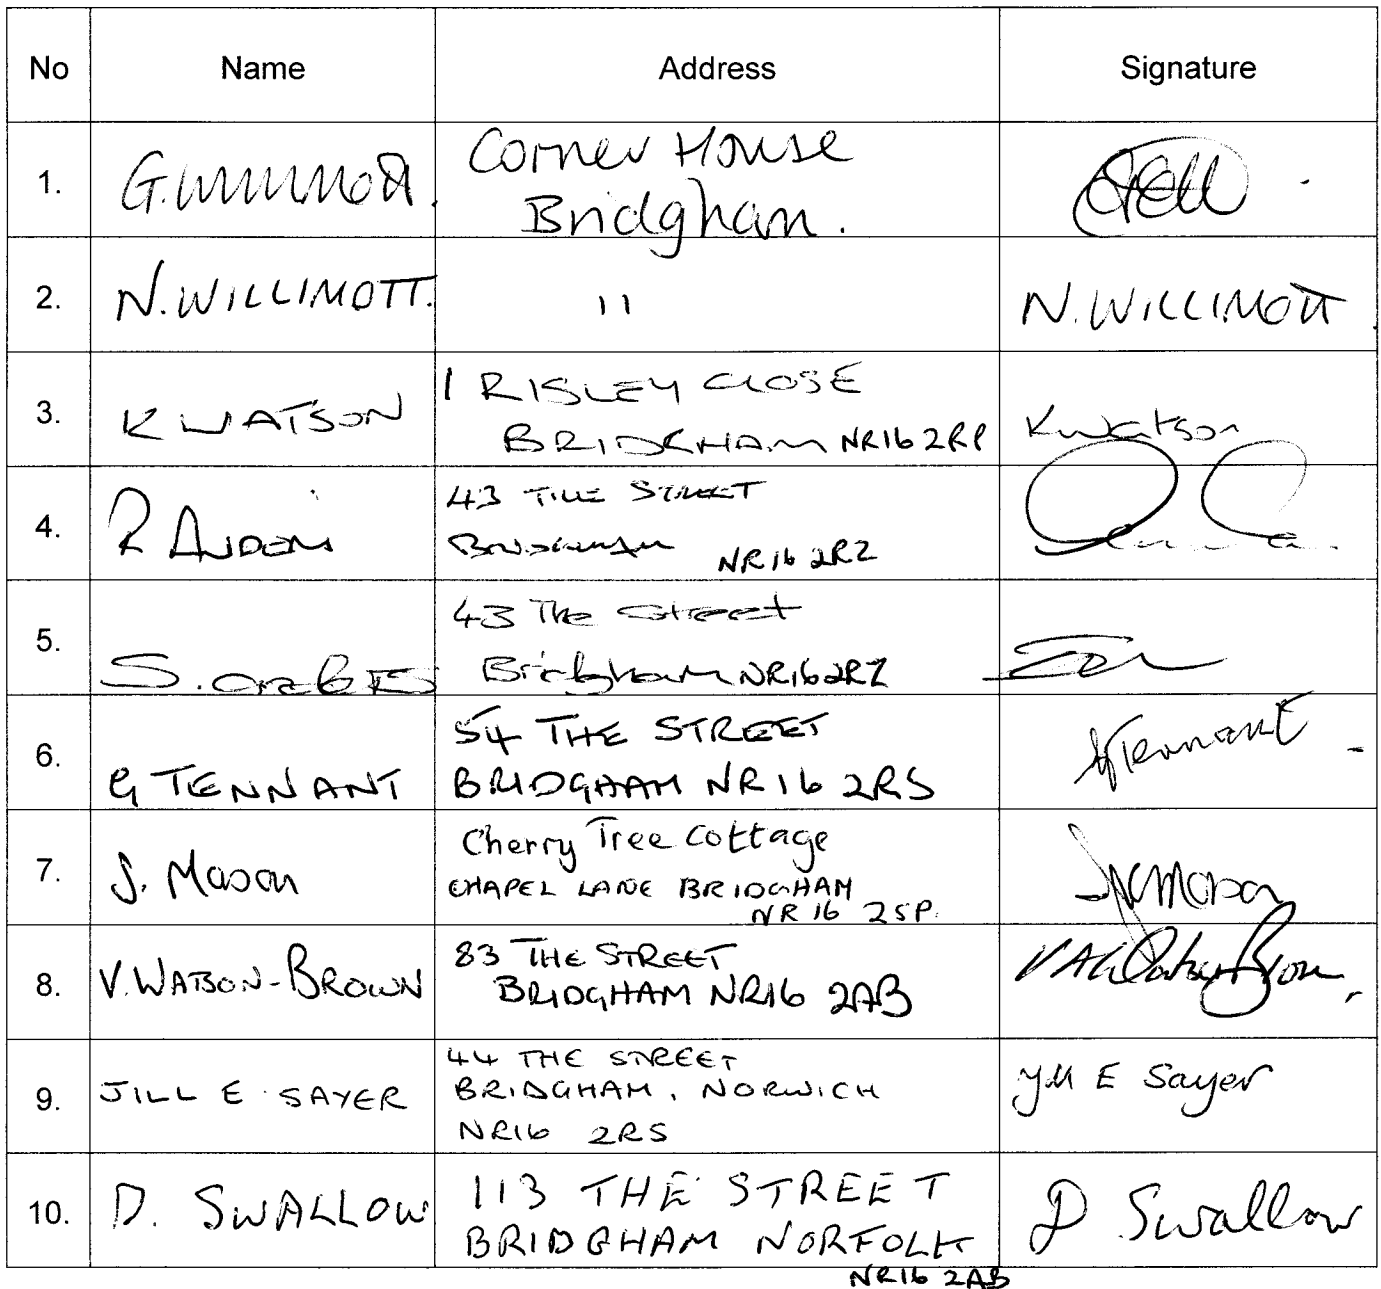 No Name Address Signature
1. G. Willimott. Corner House
Bridgham.
2. N. WILLIMOTT. 11 N. WILLIMOTT
3. K WATSON 1 RISLEY CLOSE
BRIDGHAM NR16 2RP K Watson
4. R 43 THE STREET
Bridgham NR16 2RZ
5. S. 43 The Street
Bridgham NR16 2RZ
6. G TENNANT 54 THE STREET
BRIDGHAM NR16 2RS GTennant
7. J. Mason Cherry Tree Cottage
CHAPEL LANE BRIDGHAM
NR16 2SP. Mason
8. V. WATSON-BROWN 83 THE STREET
BRIDGHAM NR16 2AB
9. JILL E SAYER 44 THE STREET
BRIDGHAM, NORWICH
NR16 2RS Jill E Sayer
10. D. SWALLOW 113 THE STREET
BRIDGHAM NORFOLK
NR16 2AB D. Swallow